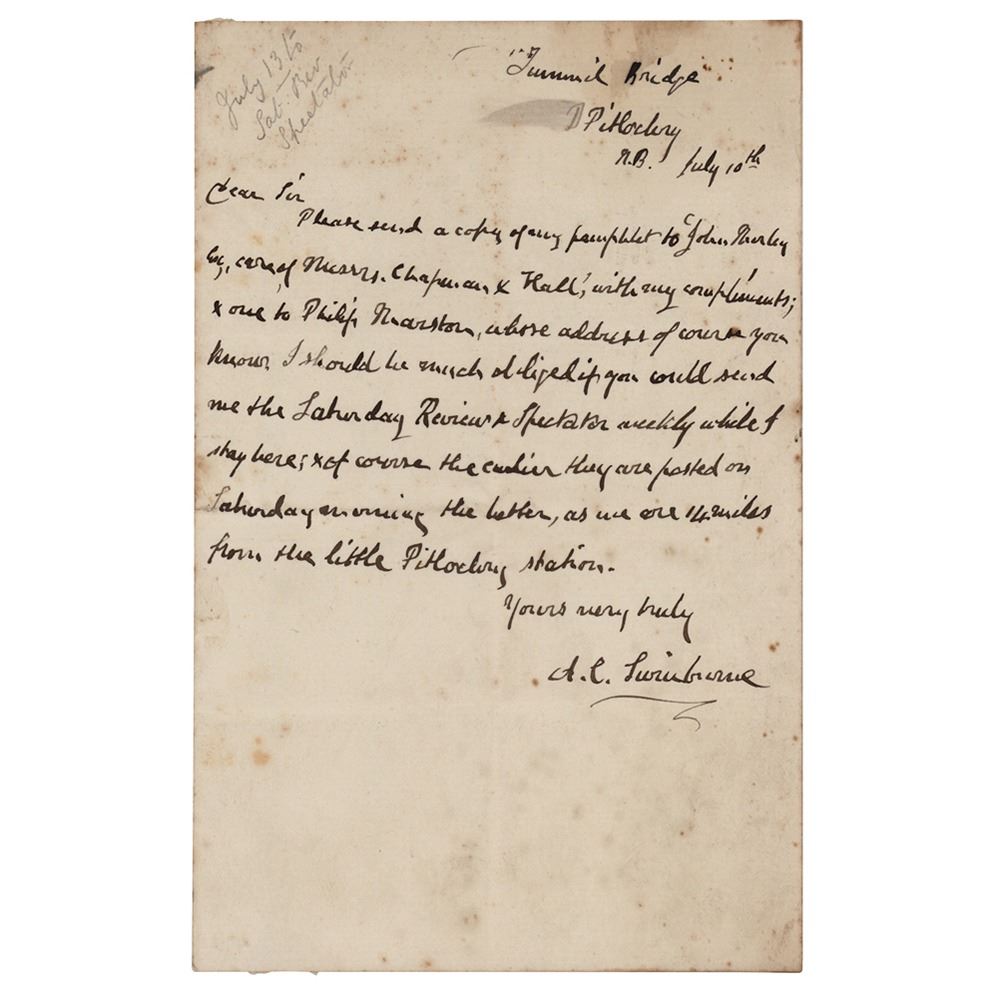 July 13 to
Sat. Rev
Spectator
Tummel Bridge
Pitlochry
N.B. July 10th
Dear Sir
Please send a copy of my pamphlet to "John Morley
Esq, care of Messrs. Chapman & Hall", with my compliments;
& one to Philip Marston, whose address of course you
know. I should be much obliged if you could send
me the Saturday Review & Spectator weekly while I
stay here; & of course the earlier they are posted on
Saturday morning the better, as we are 14 miles
from the little Pitlochry station.
Yours very truly
A. C. Swinburne